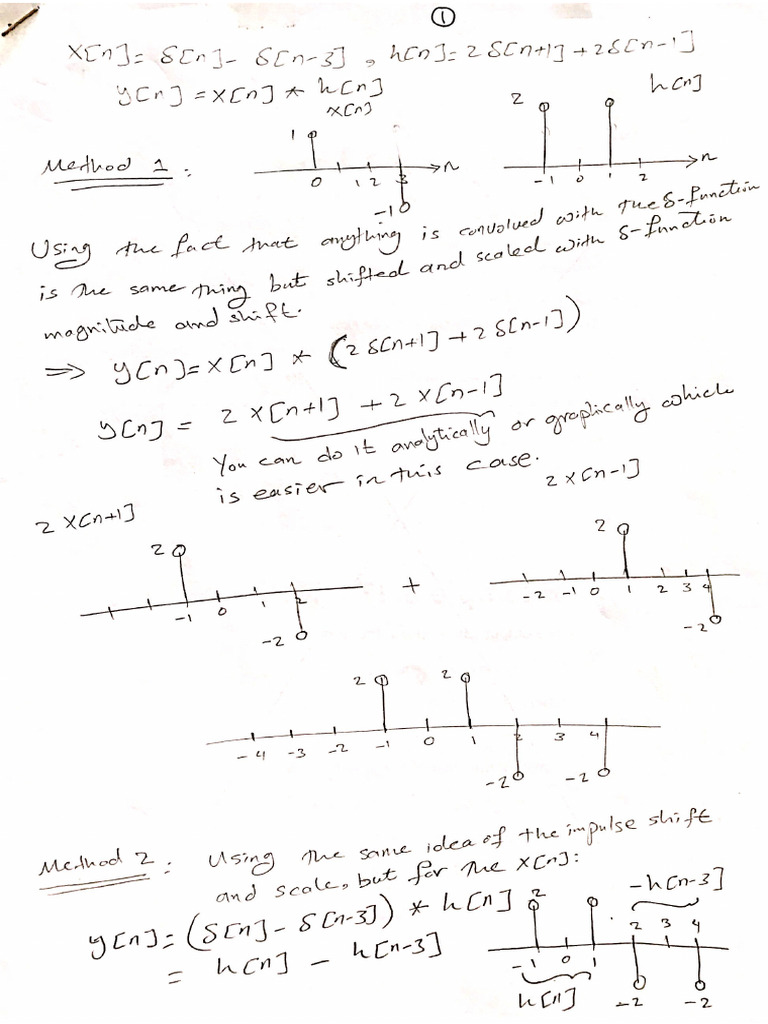 1
x[n] = δ[n] - δ[n-3] , h[n] = 2δ[n+1] + 2δ[n-1]
y[n] = x[n] * h[n]
x[n]
h[n]
Method 1 :
1
0 1 2 3 n
-1
2
-1 0 1 2 n
Using the fact that anything is convolved with the δ-function
is the same thing but shifted and scaled with δ-function
magnitude and shift.
⇒ y[n] = x[n] * (2δ[n+1] + 2δ[n-1])
y[n] = 2x[n+1] + 2x[n-1]
You can do it analytically or graphically which
is easier in this case.
2x[n+1]
2x[n-1]
2
-1 0 1 2
-2
+
2
-2 -1 0 1 2 3 4
-2
2 2
-4 -3 -2 -1 0 1 2 3 4
-2 -2
Method 2 : Using the same idea of the impulse shift
and scale, but for the x[n]:
y[n] = (δ[n] - δ[n-3]) * h[n]
= h[n] - h[n-3]
2
-h[n-3]
-1 0 1 2 3 4
h[n] -2 -2